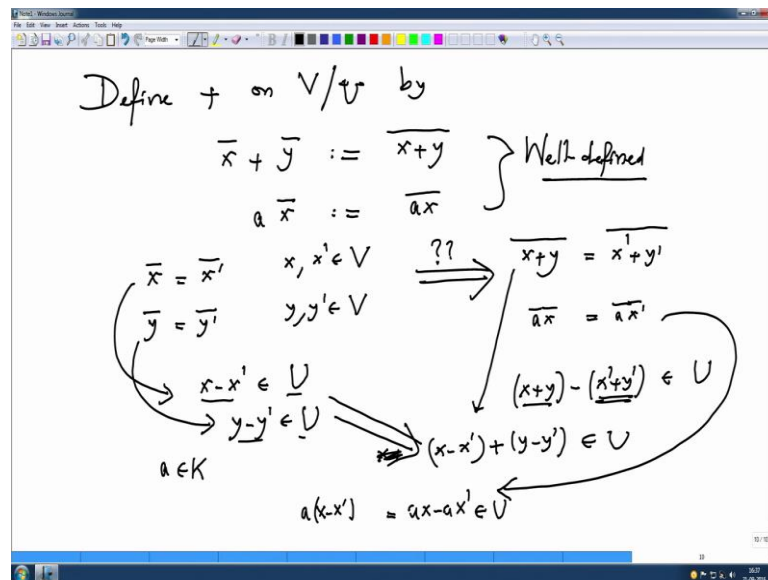 Note1 - Windows Journal
File Edit View Insert Actions Tools Help
Page Width
Define + on V/U by
x̄ + ȳ := \overline{x+y}
a x̄ := \overline{ax}
} Well-defined
x̄ = \overline{x'} x, x' ∈ V ⟹ ?? \overline{x+y} = \overline{x'+y'}
ȳ = \overline{y'} y, y' ∈ V \overline{ax} = \overline{ax'}
x-x' ∈ U (x+y)-(x'+y') ∈ U
y-y' ∈ U ⟹ (x-x')+(y-y') ∈ U
a ∈ K
a(x-x') = ax-ax' ∈ U
10
16:37